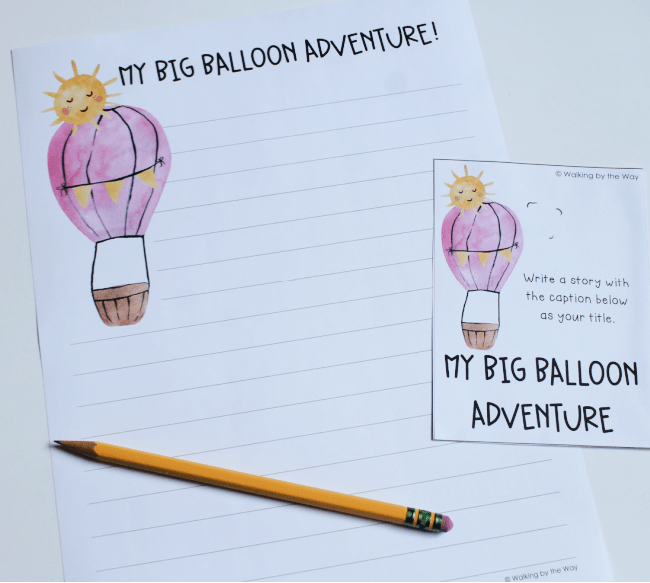 MY BIG BALLOON ADVENTURE!
© Walking by the Way
Write a story with
the caption below
as your title.
MY BIG BALLOON
ADVENTURE
© Walking by the Way